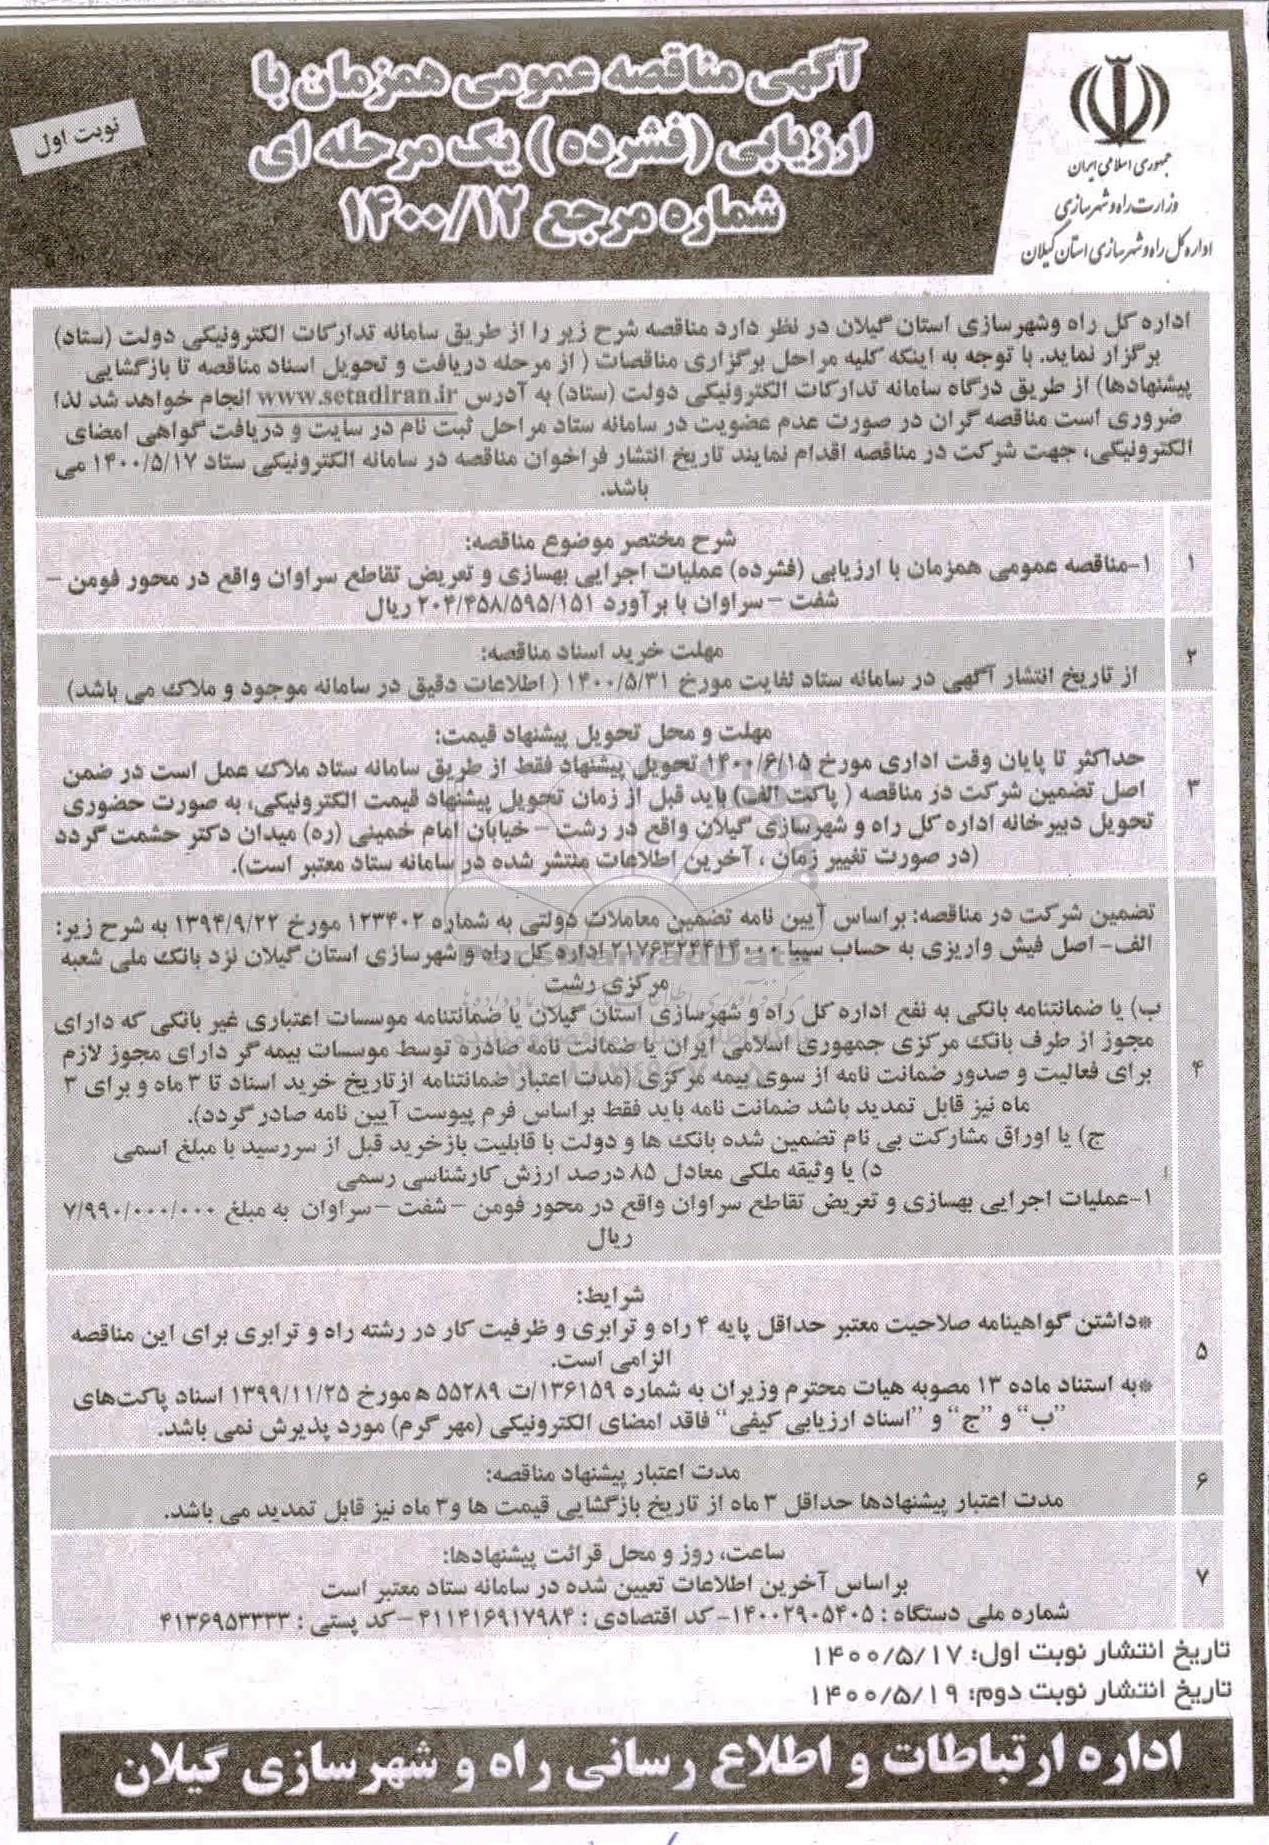 آگهی مناقصه عمومی همزمان با
ارزیابی (فشرده) یک مرحله ای
شماره مرجع ۱۴۰۰/۱۲
نوبت اول
جمهوری اسلامی ایران
وزارت راه و شهرسازی
اداره کل راه و شهرسازی استان گیلان
اداره کل راه وشهرسازی استان گیلان در نظر دارد مناقصه شرح زیر را از طریق سامانه تدارکات الکترونیکی دولت (ستاد)
برگزار نماید. با توجه به اینکه کلیه مراحل برگزاری مناقصات ( از مرحله دریافت و تحویل اسناد مناقصه تا بازگشایی
پیشنهادها) از طریق درگاه سامانه تدارکات الکترونیکی دولت (ستاد) به آدرس www.setadiran.ir انجام خواهد شد لذا
ضروری است مناقصه گران در صورت عدم عضویت در سامانه ستاد مراحل ثبت نام در سایت و دریافت گواهی امضای
الکترونیکی، جهت شرکت در مناقصه اقدام نمایند تاریخ انتشار فراخوان مناقصه در سامانه الکترونیکی ستاد ۱۴۰۰/۵/۱۷ می
باشد.
۱
شرح مختصر موضوع مناقصه:
۱-مناقصه عمومی همزمان با ارزیابی (فشرده) عملیات اجرایی بهسازی و تعریض تقاطع سراوان واقع در محور فومن –
شفت – سراوان با برآورد ۲۰۴/۴۵۸/۵۹۵/۱۵۱ ریال
۲
مهلت خرید اسناد مناقصه:
از تاریخ انتشار آگهی در سامانه ستاد لغایت مورخ ۱۴۰۰/۵/۳۱ ( اطلاعات دقیق در سامانه موجود و ملاک می باشد)
۳
مهلت و محل تحویل پیشنهاد قیمت:
حداکثر تا پایان وقت اداری مورخ ۱۴۰۰/۶/۱۵ تحویل پیشنهاد فقط از طریق سامانه ستاد ملاک عمل است در ضمن
اصل تضمین شرکت در مناقصه ( پاکت الف) باید قبل از زمان تحویل پیشنهاد قیمت الکترونیکی، به صورت حضوری
تحویل دبیرخانه اداره کل راه و شهرسازی گیلان واقع در رشت – خیابان امام خمینی (ره) میدان دکتر حشمت گردد
(در صورت تغییر زمان ، آخرین اطلاعات منتشر شده در سامانه ستاد معتبر است).
۴
تضمین شرکت در مناقصه: براساس آیین نامه تضمین معاملات دولتی به شماره ۱۲۳۴۰۲ مورخ ۱۳۹۴/۹/۲۲ به شرح زیر:
الف- اصل فیش واریزی به حساب سیبا ۲۱۷۶۳۲۴۴۱۴۰۰۰ اداره کل راه و شهرسازی استان گیلان نزد بانک ملی شعبه
مرکزی رشت
ب) یا ضمانتنامه بانکی به نفع اداره کل راه و شهرسازی استان گیلان یا ضمانتنامه موسسات اعتباری غیر بانکی که دارای
مجوز از طرف بانک مرکزی جمهوری اسلامی ایران یا ضمانت نامه صادره توسط موسسات بیمه گر دارای مجوز لازم
برای فعالیت و صدور ضمانت نامه از سوی بیمه مرکزی (مدت اعتبار ضمانتنامه از تاریخ خرید اسناد تا ۳ ماه و برای ۳
ماه نیز قابل تمدید باشد ضمانت نامه باید فقط براساس فرم پیوست آیین نامه صادر گردد).
ج) یا اوراق مشارکت بی نام تضمین شده بانک ها و دولت با قابلیت بازخرید قبل از سررسید با مبلغ اسمی
د) یا وثیقه ملکی معادل ۸۵ درصد ارزش کارشناسی رسمی
۱-عملیات اجرایی بهسازی و تعریض تقاطع سراوان واقع در محور فومن – شفت – سراوان به مبلغ ۷/۹۹۰/۰۰۰/۰۰۰
ریال
۵
شرایط:
*داشتن گواهینامه صلاحیت معتبر حداقل پایه ۴ راه و ترابری و ظرفیت کار در رشته راه و ترابری برای این مناقصه
الزامی است.
*به استناد ماده ۱۳ مصوبه هیات محترم وزیران به شماره ۱۳۶۱۵۹/ت ۵۵۲۸۹ ه مورخ ۱۳۹۹/۱۱/۲۵ اسناد پاکت‌های
"ب" و "ج" و "اسناد ارزیابی کیفی" فاقد امضای الکترونیکی (مهر گرم) مورد پذیرش نمی باشد.
۶
مدت اعتبار پیشنهاد مناقصه:
مدت اعتبار پیشنهادها حداقل ۳ ماه از تاریخ بازگشایی قیمت ها و۳ ماه نیز قابل تمدید می باشد.
۷
ساعت، روز و محل قرائت پیشنهادها:
براساس آخرین اطلاعات تعیین شده در سامانه ستاد معتبر است
شماره ملی دستگاه : ۱۴۰۰۲۹۰۵۴۰۵- کد اقتصادی : ۴۱۱۴۱۶۹۱۷۹۸۴ – کد پستی : ۴۱۳۶۹۵۳۳۳۳
تاریخ انتشار نوبت اول: ۱۴۰۰/۵/۱۷
تاریخ انتشار نوبت دوم: ۱۴۰۰/۵/۱۹
اداره ارتباطات و اطلاع رسانی راه و شهرسازی گیلان